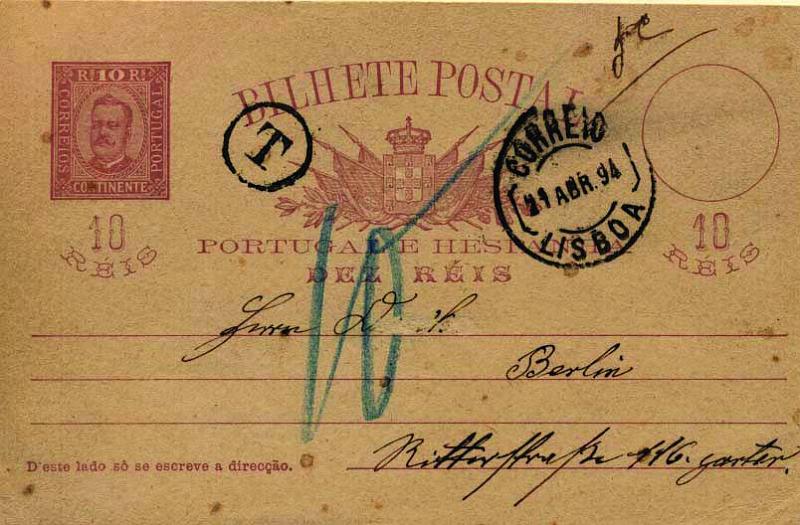 Rs 10 Rs
CORREIOS
PORTUGAL
CONTINENTE
10
RÉIS
BILHETE POSTAL
T
CORREIO
21 ABR. 94
LISBOA
PORTUGAL E HESPANHA
DEZ RÉIS
10
RÉIS
10
Herrn D.
Berlin
Ritterstraße 116.
D'este lado só se escreve a direcção.